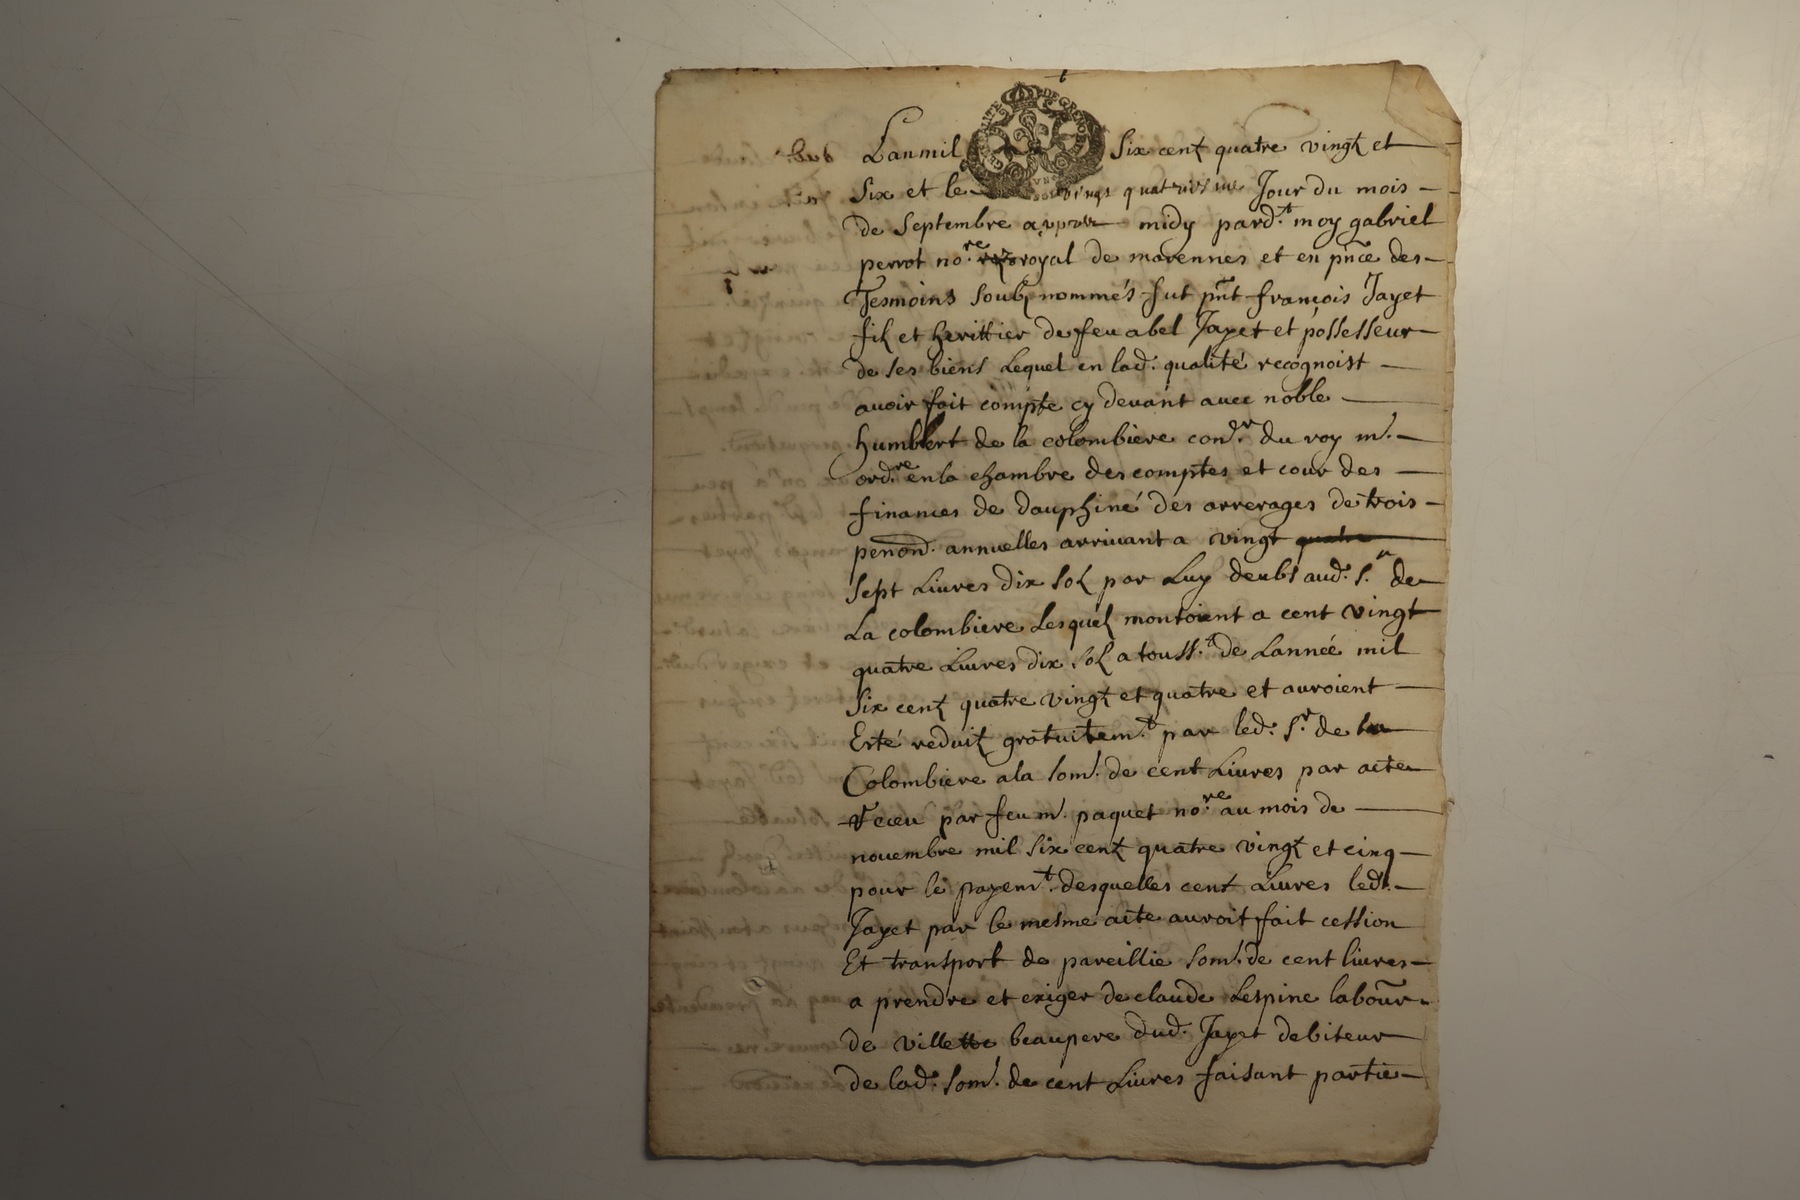 Lanmil six cent quatre vingt et
six et le vingt quatriesme Jour du mois
de septembre apres midy pard.t moy gabriel
perrot no.re royal de morennes et en pnce des
Tesmoins soubz nommés fut pnt françois Jayet
filz et herittier de feu abel Jayet et possesseur
de ses biens Lequel en lad. qualité recognoist
avoir fait compte cy devant avec noble
humbert de la colombiere con.er du roy m.
ord.re en la chambre des comptes et cour des
finances de dauphiné des arrerages de trois
penon. annuelles arrivant a vingt quatre
sept Livres dix solz par Luy deubs aud. s.r de
La colombiere Lesquelz montoient a cent vingt
quatre Livres dix solz a touss.t de Lannée mil
six centz quatre vingtz et quatre et auroient
Esté reduitz gratuitem.t par led. s.r de la
Colombiere a la som. de cent Livres par acte
receu par feu m. paquet no.re au mois de
novembre mil six centz quatre vingtz et cinq
pour le payem.t desquelles cent Livres led.
Jayet par le mesme acte auroit fait cession
Et transport de pareillie som. de cent livres
a prendre et exiger de claude Lespine labour
de villette beaupere dud. Jayet debiteur
de lad. som. de cent Livres faisant partie